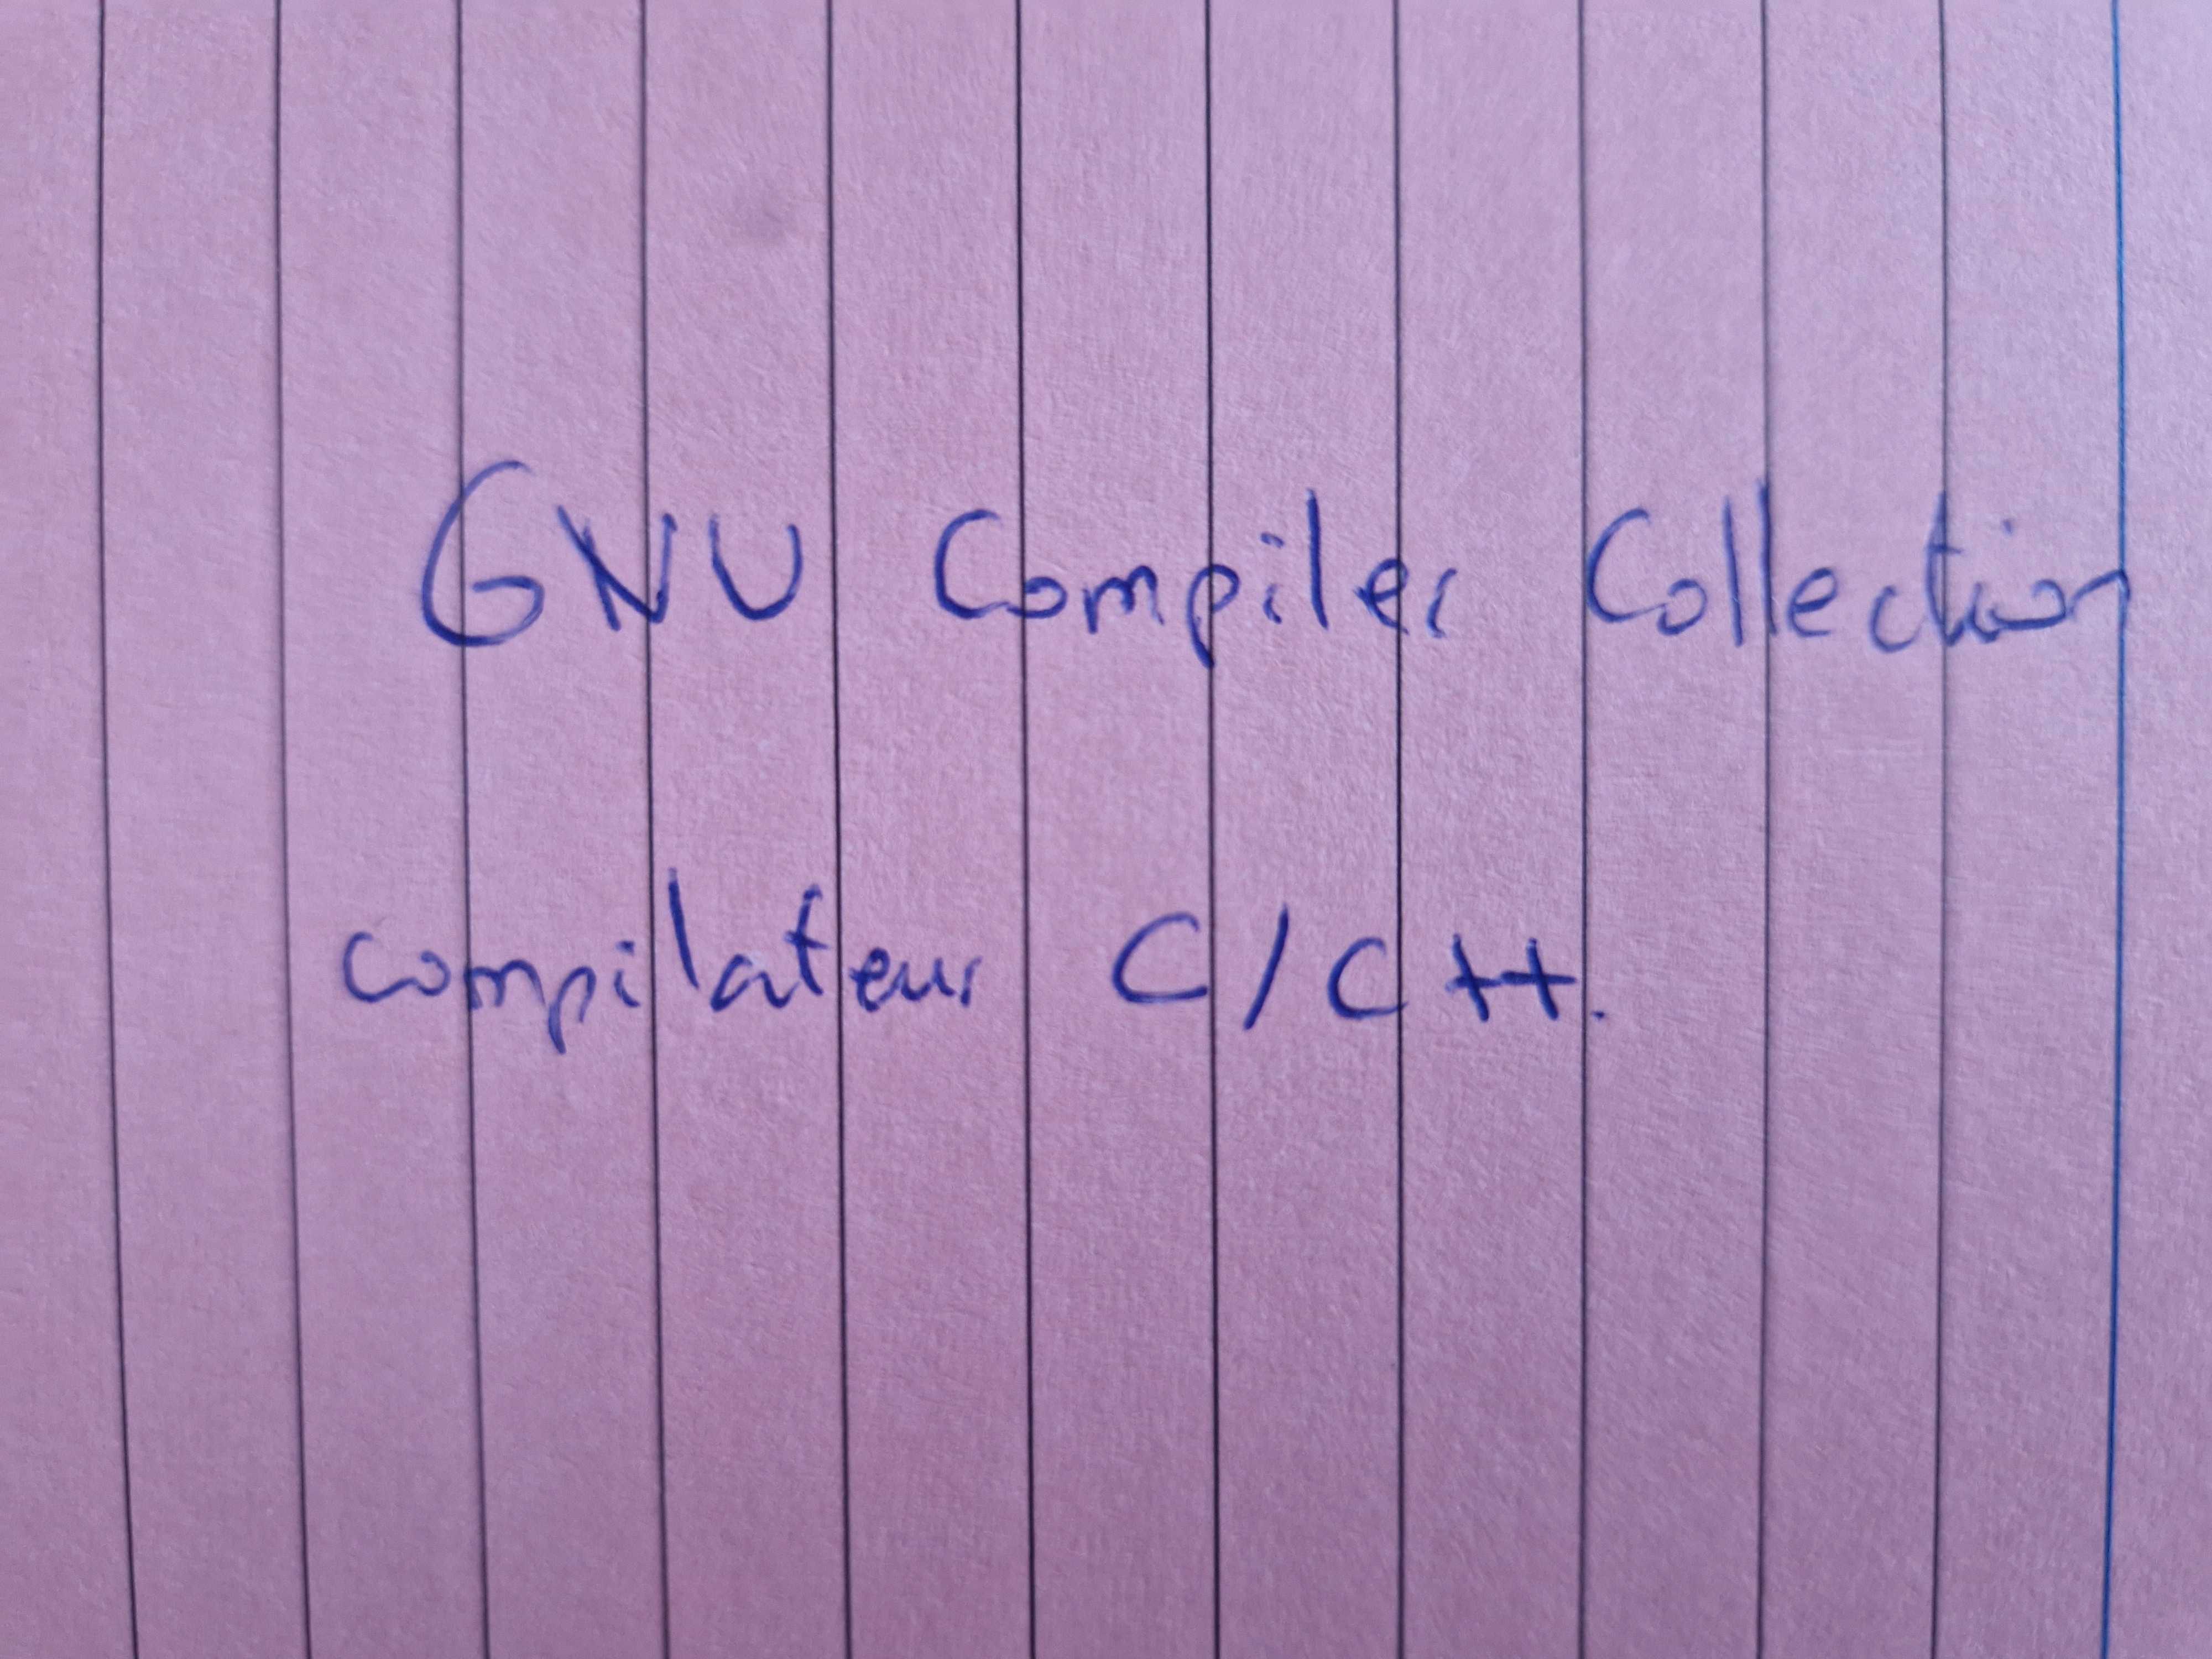 GNU Compiler Collection
compilateur C/C++.